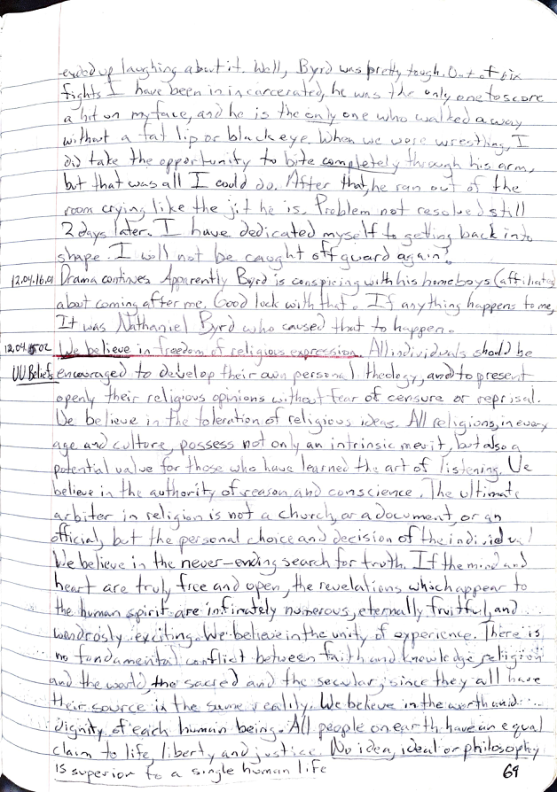 ended up laughing about it. Well, Byrd was pretty tough. Out of six
fights I have been in incarcerated, he was the only one to score
a hit on my face, and he is the only one who walked away
without a fat lip or black eye. When we were wrestling, I
did take the opportunity to bite completely through his arm,
but that was all I could do. After that, he ran out of the
room crying like the jit he is. Problem not resolved still
2 days later. I have dedicated myself to getting back into
shape. I will not be caught off guard again!
12.04.16.01 Drama continues. Apparently Byrd is conspiring with his homeboys (affiliates)
about coming after me. Good luck with that. If anything happens to me,
It was Nathaniel Byrd who caused that to happen.
12.04.15.02 We believe in freedom of religious expression. All individuals should be
UU Beliefs encouraged to develop their own personal theology, and to present
openly their religious opinions without fear of censure or reprisal.
We believe in the toleration of religious ideas. All religions, in every
age and culture, possess not only an intrinsic merit, but also a
potential value for those who have learned the art of listening. We
believe in the authority of reason and conscience. The ultimate
arbiter in religion is not a church, or a document, or an
official, but the personal choice and decision of the individual
We believe in the never-ending search for truth. If the mind and
heart are truly free and open, the revelations which appear to
the human spirit are infinately numerous, eternally fruitful, and
wondrosly exciting. We believe in the unity of experience. There is
no fundamental conflict between faith and knowledge, religion
and the world, the sacred and the secular, since they all have
their source in the same reality. We believe in the worth and
dignity of each human being. All people on earth have an equal
claim to life, liberty, and justice. No idea, ideal or philosophy
is superior to a single human life
69